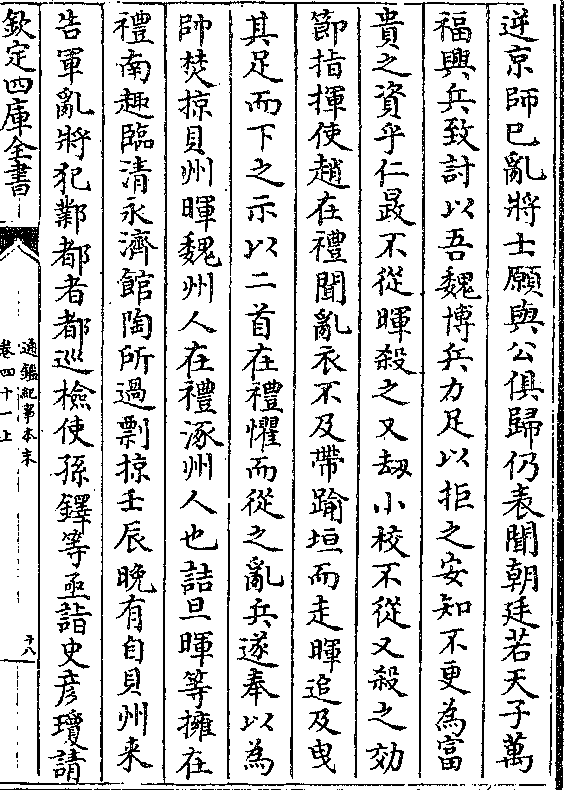 逆京師已亂將士願與公俱歸仍表聞朝廷若天子萬
福興兵致討以吾魏博兵力足以拒之安知不更為富
貴之資乎仁晸不從暉殺之又刼小校不從又殺之効
節指揮使趙在禮聞亂衣不及帶踰垣而走暉追及曳
其足而下之示以二首在禮懼而從之亂兵遂奉以為
帥焚掠貝州暉魏州人在禮涿州人也詰旦暉等擁在
禮南趣臨清永濟館陶所過剽掠壬辰晚有自貝州来
告軍亂將犯鄴都者都巡檢使孫鐸等亟詣史彦瓊請
欽定四庫全書
通鑑紀事本末
卷四十一上
十八